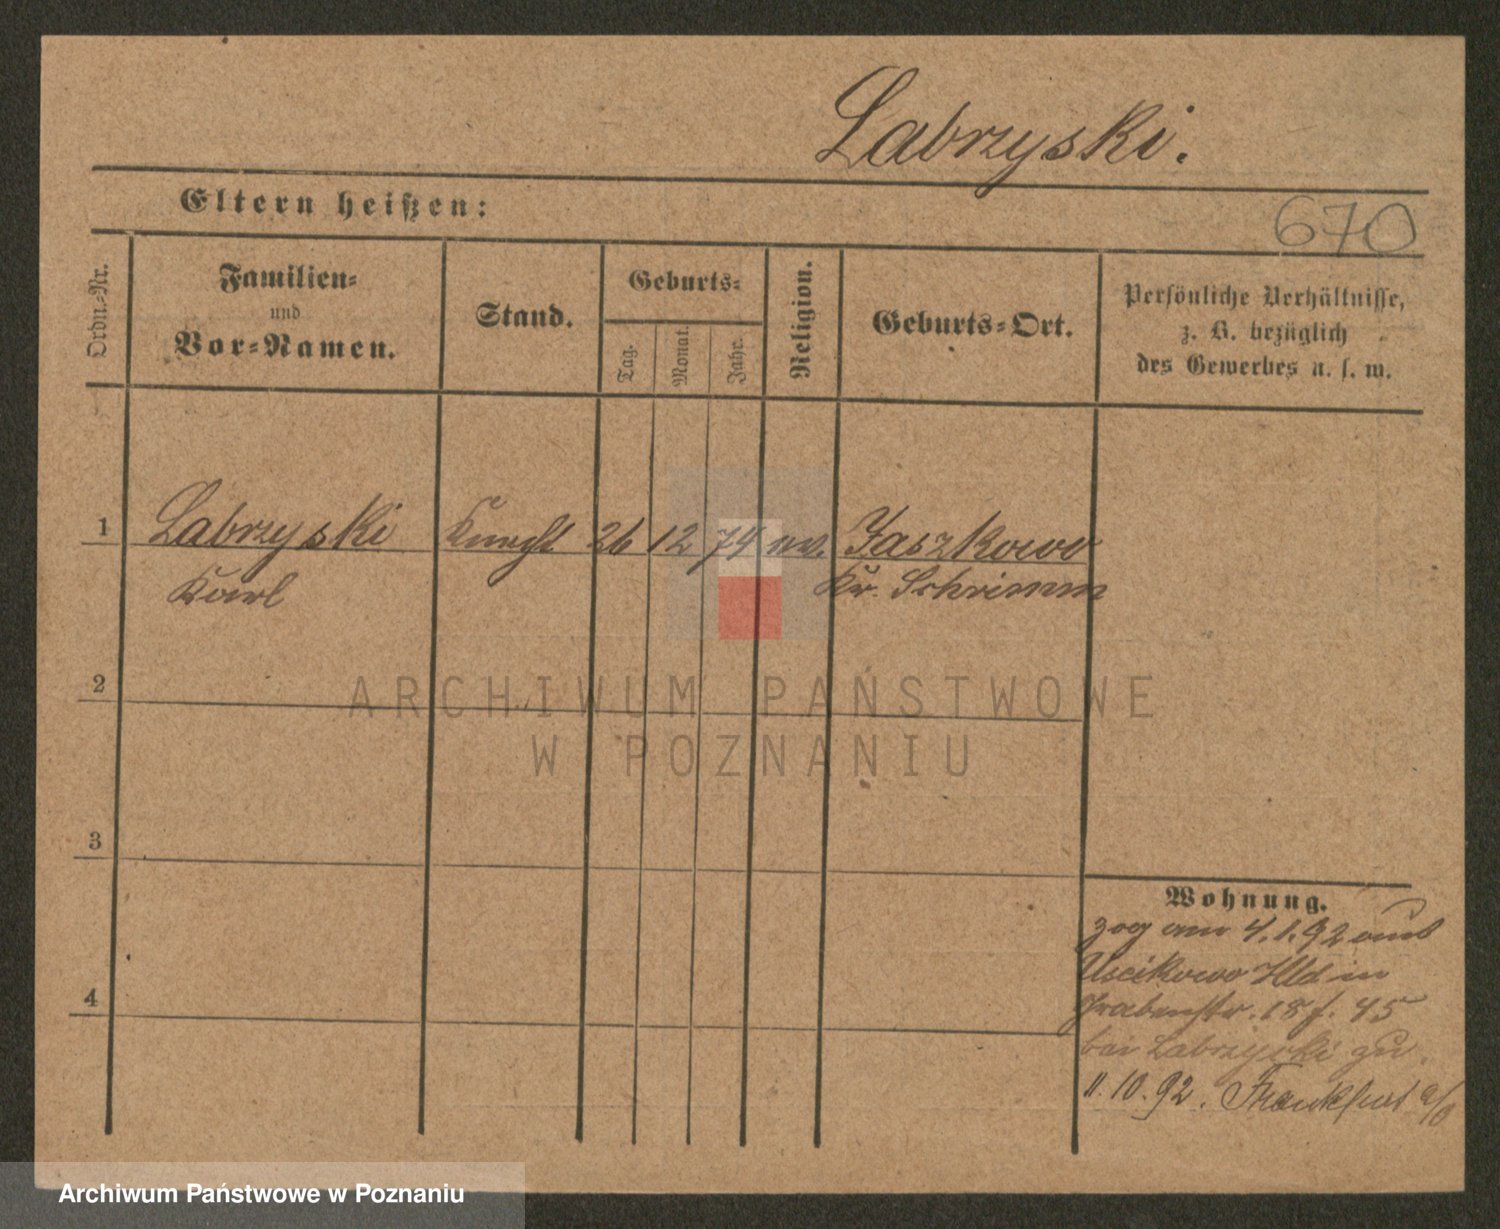 Labrzyski.
Eltern heißen:
670
Ordn.-Nr.
Familien-
und
Vor-Namen.
Stand.
Geburts-
Tag.
Monat.
Jahr.
Religion.
Geburts-Ort.
Persönliche Verhältnisse,
z. B. bezüglich
des Gewerbes u. s. w.
1 Labrzyski Knecht 26 12 74 ev. Jaszkowo
Karl Kr. Schrimm
2
3
4
Wohnung.
zog am 4.1.92 aus
Uscikowo Hld in
Grabenstr. 18 f. 45
bei Labrzyski zu.
11.10.92. Frankfurt a/O
ARCHIWUM PAŃSTWOWE
W POZNANIU
Archiwum Państwowe w Poznaniu